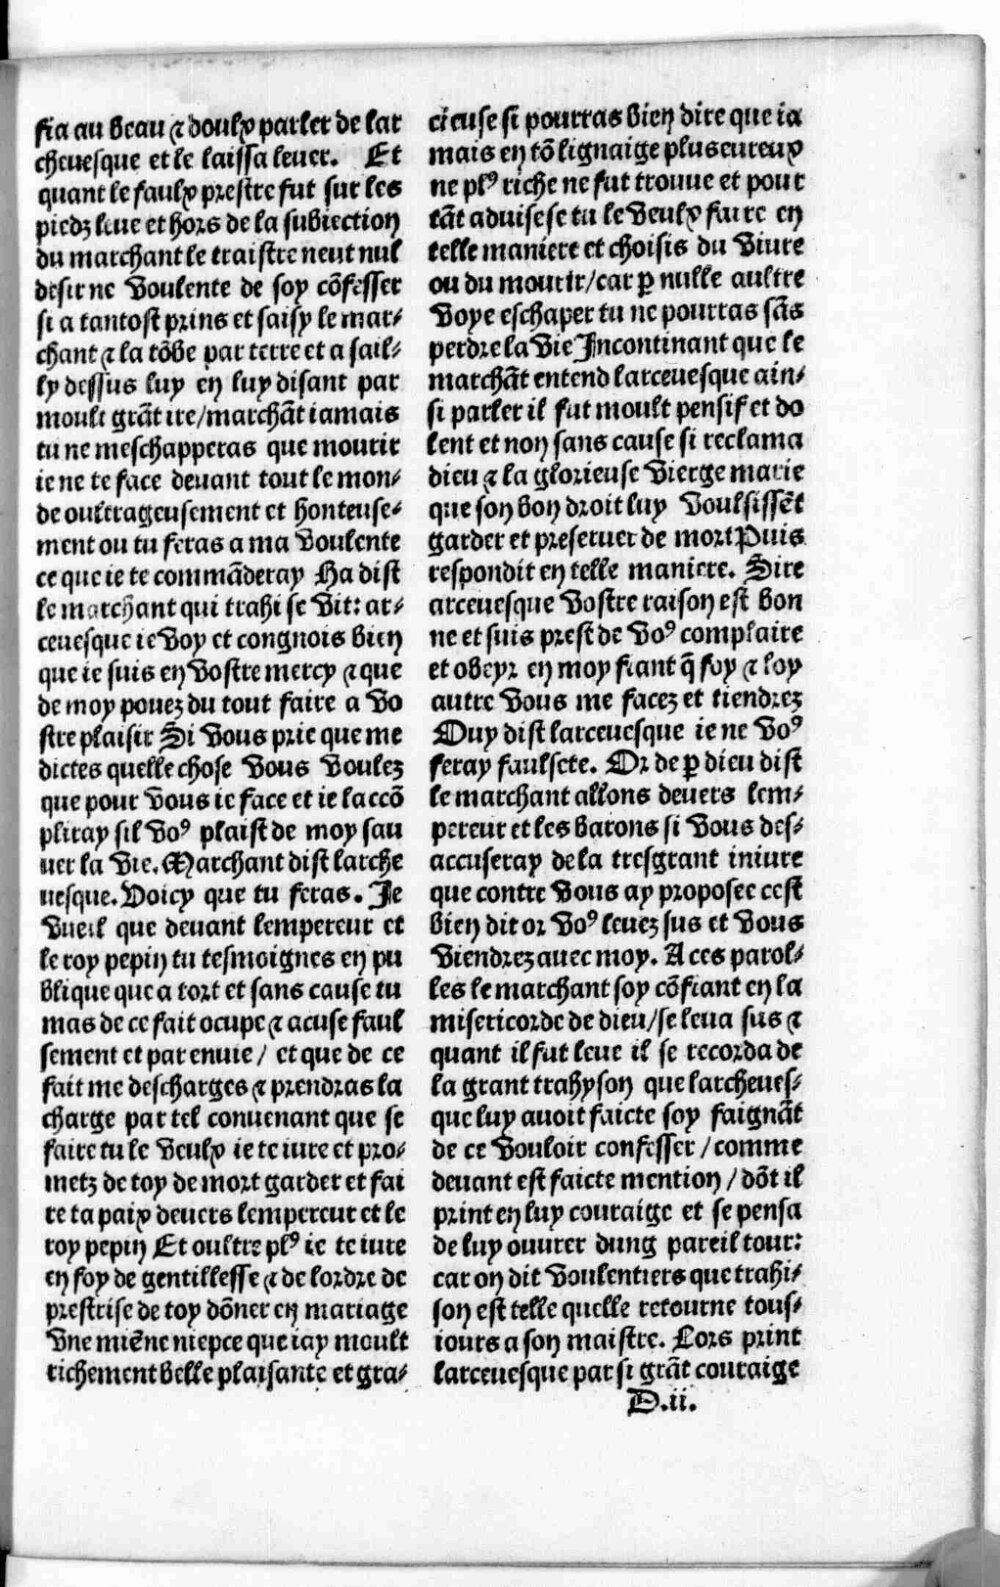 fia au beau ⁊ doulx parler de lar
chevesque et le laissa lever. Et
quant le faulx prestre fut sur les
piedz leve et hors de la subiection
du marchant le traistre neut nul
desir ne voulente de soy cõfesser
si a tantost prins et saisy le mar-
chant ⁊ la tõbe par terre et a sail-
ly dessus luy en luy disant par
moult grãt ire/marchãt iamais
tu ne meschapperas que mourir
ie ne te face devant tout le mon-
de oultrageusement et honteuse-
ment ou tu feras a ma voulente
ce que ie te commãderay Ha dist
le marchant qui trahi se vit: ar-
cevesque ie voy et congnois bien
que ie suis en vostre mercy ⁊ que
de moy povez du tout faire a vo
stre plaisir Si vous prie que me
dictes quelle chose vous voulez
que pour vous ie face et ie laccõ
pliray sil voꝰ plaist de moy sau
uer la vie. Marchant dist larche
uesque. Voicy que tu feras. Je
vueil que devant lempereur et
le roy pepin tu tesmoignes en pu
blique que a tort et sans cause tu
mas de ce fait ocupe ⁊ acuse faul
sement et par enuie/ et que de ce
fait me descharges ⁊ prendras la
charge par tel convenant que se
faire tu le veulx ie te iure et pro-
metz de toy de mort garder et fai
re ta paix devers lempereur et le
roy pepin Et oultre plꝰ ie te iure
en foy de gentillesse ⁊ de lordre de
prestrise de toy dõner en mariage
vne miẽne niepce que iay moult
richement belle plaisante et gra-
cieuse si pourras bien dire que ia
mais en tõ lignaige plus eureux
ne plꝰ riche ne fut trouue et pour
tãt advise se tu le veulx faire en
telle maniere et choisis du vivre
ou du mourir/car ꝑ nulle aultre
voye eschaper tu ne pourras sãs
perdre la vie Incontinant que le
marchãt entend larcevesque ain-
si parler il fut moult pensif et do
lent et non sans cause si reclama
dieu ⁊ la glorieuse vierge marie
que son bon droit luy voulsissẽt
garder et preserver de mort Puis
respondit en telle maniere. Sire
arcevesque vostre raison est bon
ne et suis prest de voꝰ complaire
et obeyr en moy fiant q̃ foy ⁊ loy
autre vous me facez et tiendrez
Ouy dist larcevesque ie ne voꝰ
feray faulsete. Or de ꝑ dieu dist
le marchant allons devers lem-
pereur et les barons si vous des-
accuseray de la tresgrant iniure
que contre vous ay proposee cest
bien dit or voꝰ levez sus et vous
viendrez avec moy. A ces parol-
les le marchant soy cõfiant en la
misericorde de dieu/se leva sus ⁊
quant il fut leve il se recorda de
la grant trahyson que larcheues-
que luy avoit faicte soy faignãt
de ce vouloir confesser/comme
devant est faicte mention/dõt il
print en luy couraige et se pensa
de luy ouvrer dung pareil tour:
car on dit voulentiers que trahi-
son est telle quelle retourne tous-
iours a son maistre. Lors print
larcevesque par si grãt couraige
D.ii.